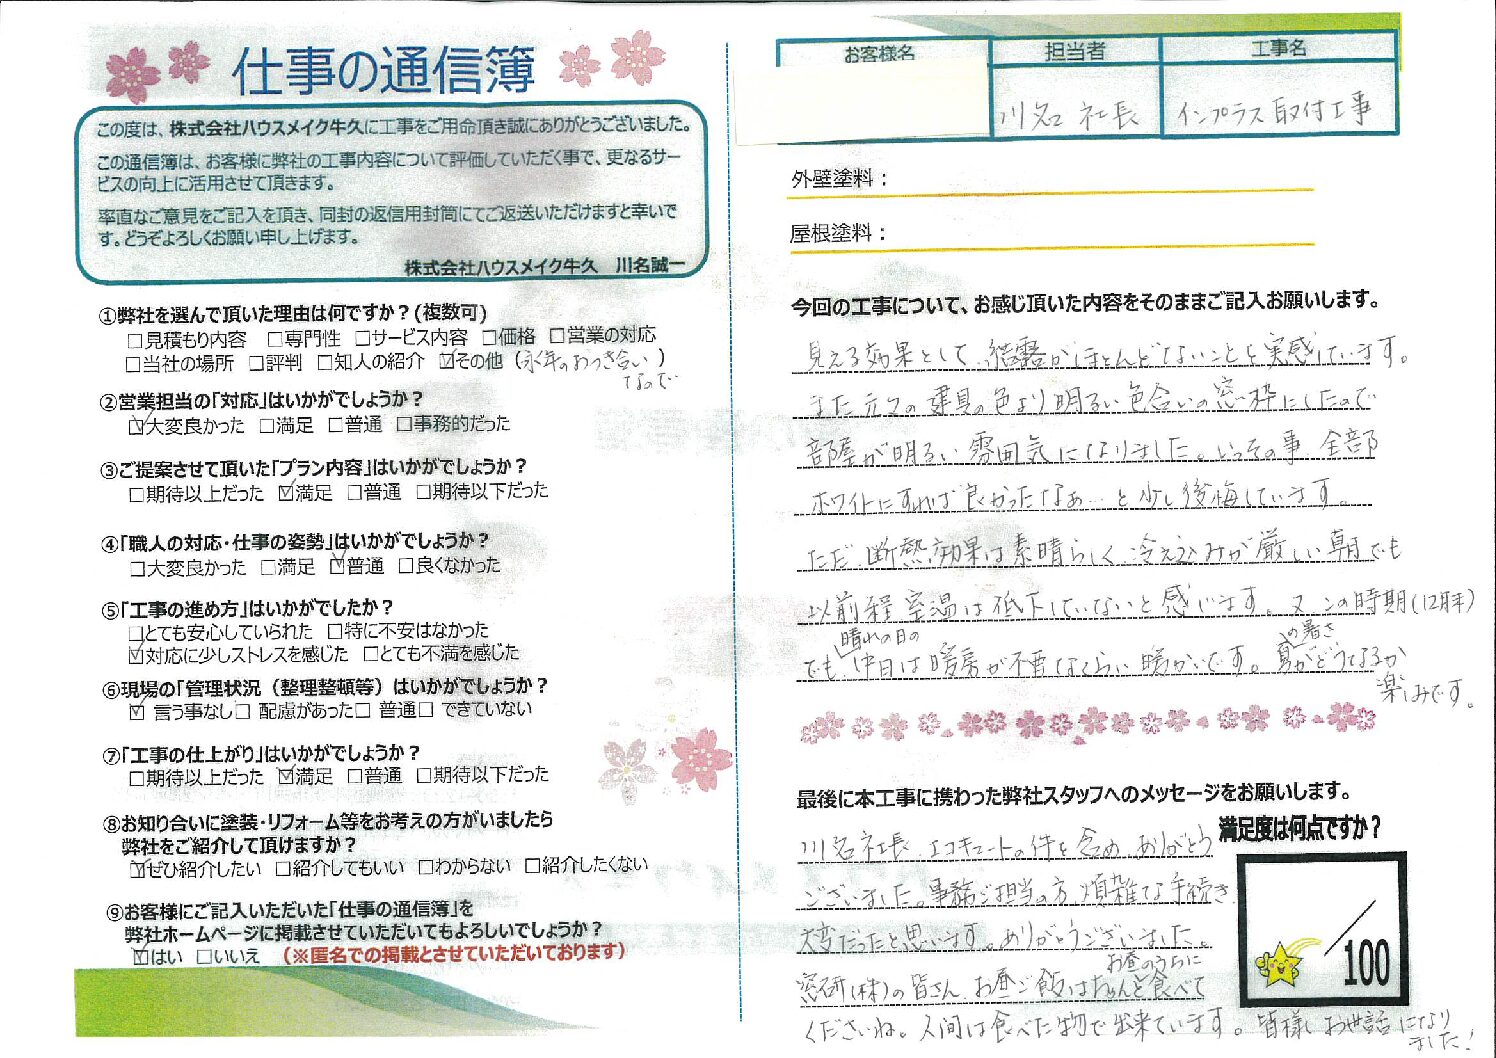 仕事の通信簿
この度は、株式会社ハウスメイク牛久に工事をご用命頂き誠にありがとうございました。
この通信簿は、お客様に弊社の工事内容について評価していただく事で、更なるサー
ビスの向上に活用させて頂きます。
率直なご意見をご記入を頂き、同封の返信用封筒にてご返送いただけますと幸いで
す。どうぞよろしくお願い申し上げます。
株式会社ハウスメイク牛久　川名誠一
①弊社を選んで頂いた理由は何ですか？(複数可)
□見積もり内容　□専門性　□サービス内容　□価格　□営業の対応
□当社の場所　□評判　□知人の紹介　☑その他（永年のおつき合い）
なので
②営業担当の「対応」はいかがでしょうか？
☑大変良かった　□満足　□普通　□事務的だった
③ご提案させて頂いた「プラン内容」はいかがでしょうか？
□期待以上だった　☑満足　□普通　□期待以下だった
④「職人の対応・仕事の姿勢」はいかがでしょうか？
□大変良かった　□満足　☑普通　□良くなかった
⑤「工事の進め方」はいかがでしたか？
□とても安心していられた　□特に不安はなかった
☑対応に少しストレスを感じた　□とても不満を感じた
⑥現場の「管理状況（整理整頓等）はいかがでしょうか？
☑ 言う事なし□ 配慮があった□ 普通□ できていない
⑦「工事の仕上がり」はいかがでしょうか？
□期待以上だった　☑満足　□普通　□期待以下だった
⑧お知り合いに塗装・リフォーム等をお考えの方がいましたら
弊社をご紹介して頂けますか？
☑ぜひ紹介したい　□紹介してもいい　□わからない　□紹介したくない
⑨お客様にご記入いただいた「仕事の通信簿」を
弊社ホームページに掲載させていただいてもよろしいでしょうか？
☑はい　□いいえ　（※匿名での掲載とさせていただいております）
お客様名　担当者　工事名
川名 社長　インプラス 取付工事
外壁塗料：
屋根塗料：
今回の工事について、お感じ頂いた内容をそのままご記入お願いします。
見える効果として、結露がほとんどないことを実感しています。
また元々の建具の色より明るい色合いの窓枠にしたので
部屋が明るい雰囲気になりました。いっその事 全部
ホワイトにすれば良かったなぁ…と少し後悔しています。
ただ、断熱効果は素晴らしく、冷え込みが厳しい朝でも
以前程室温は低下していないと感じます。又、この時期(12月末)
でも、晴れの日の日中は暖房が不要なくらい暖かいです。夏の暑さがどうなるか
楽しみです。
最後に本工事に携わった弊社スタッフへのメッセージをお願いします。
満足度は何点ですか？
川名社長、エコキュートの件も含め、ありがとう
ございました。事務ご担当の方、煩雑な手続き
大変だったと思います。ありがとうございました。
窓研(株)の皆さん、お昼ご飯はお昼のうちにちゃんと食べて
くださいね。人間は食べた物で出来ています。皆様、お世話になり
ました！
／100